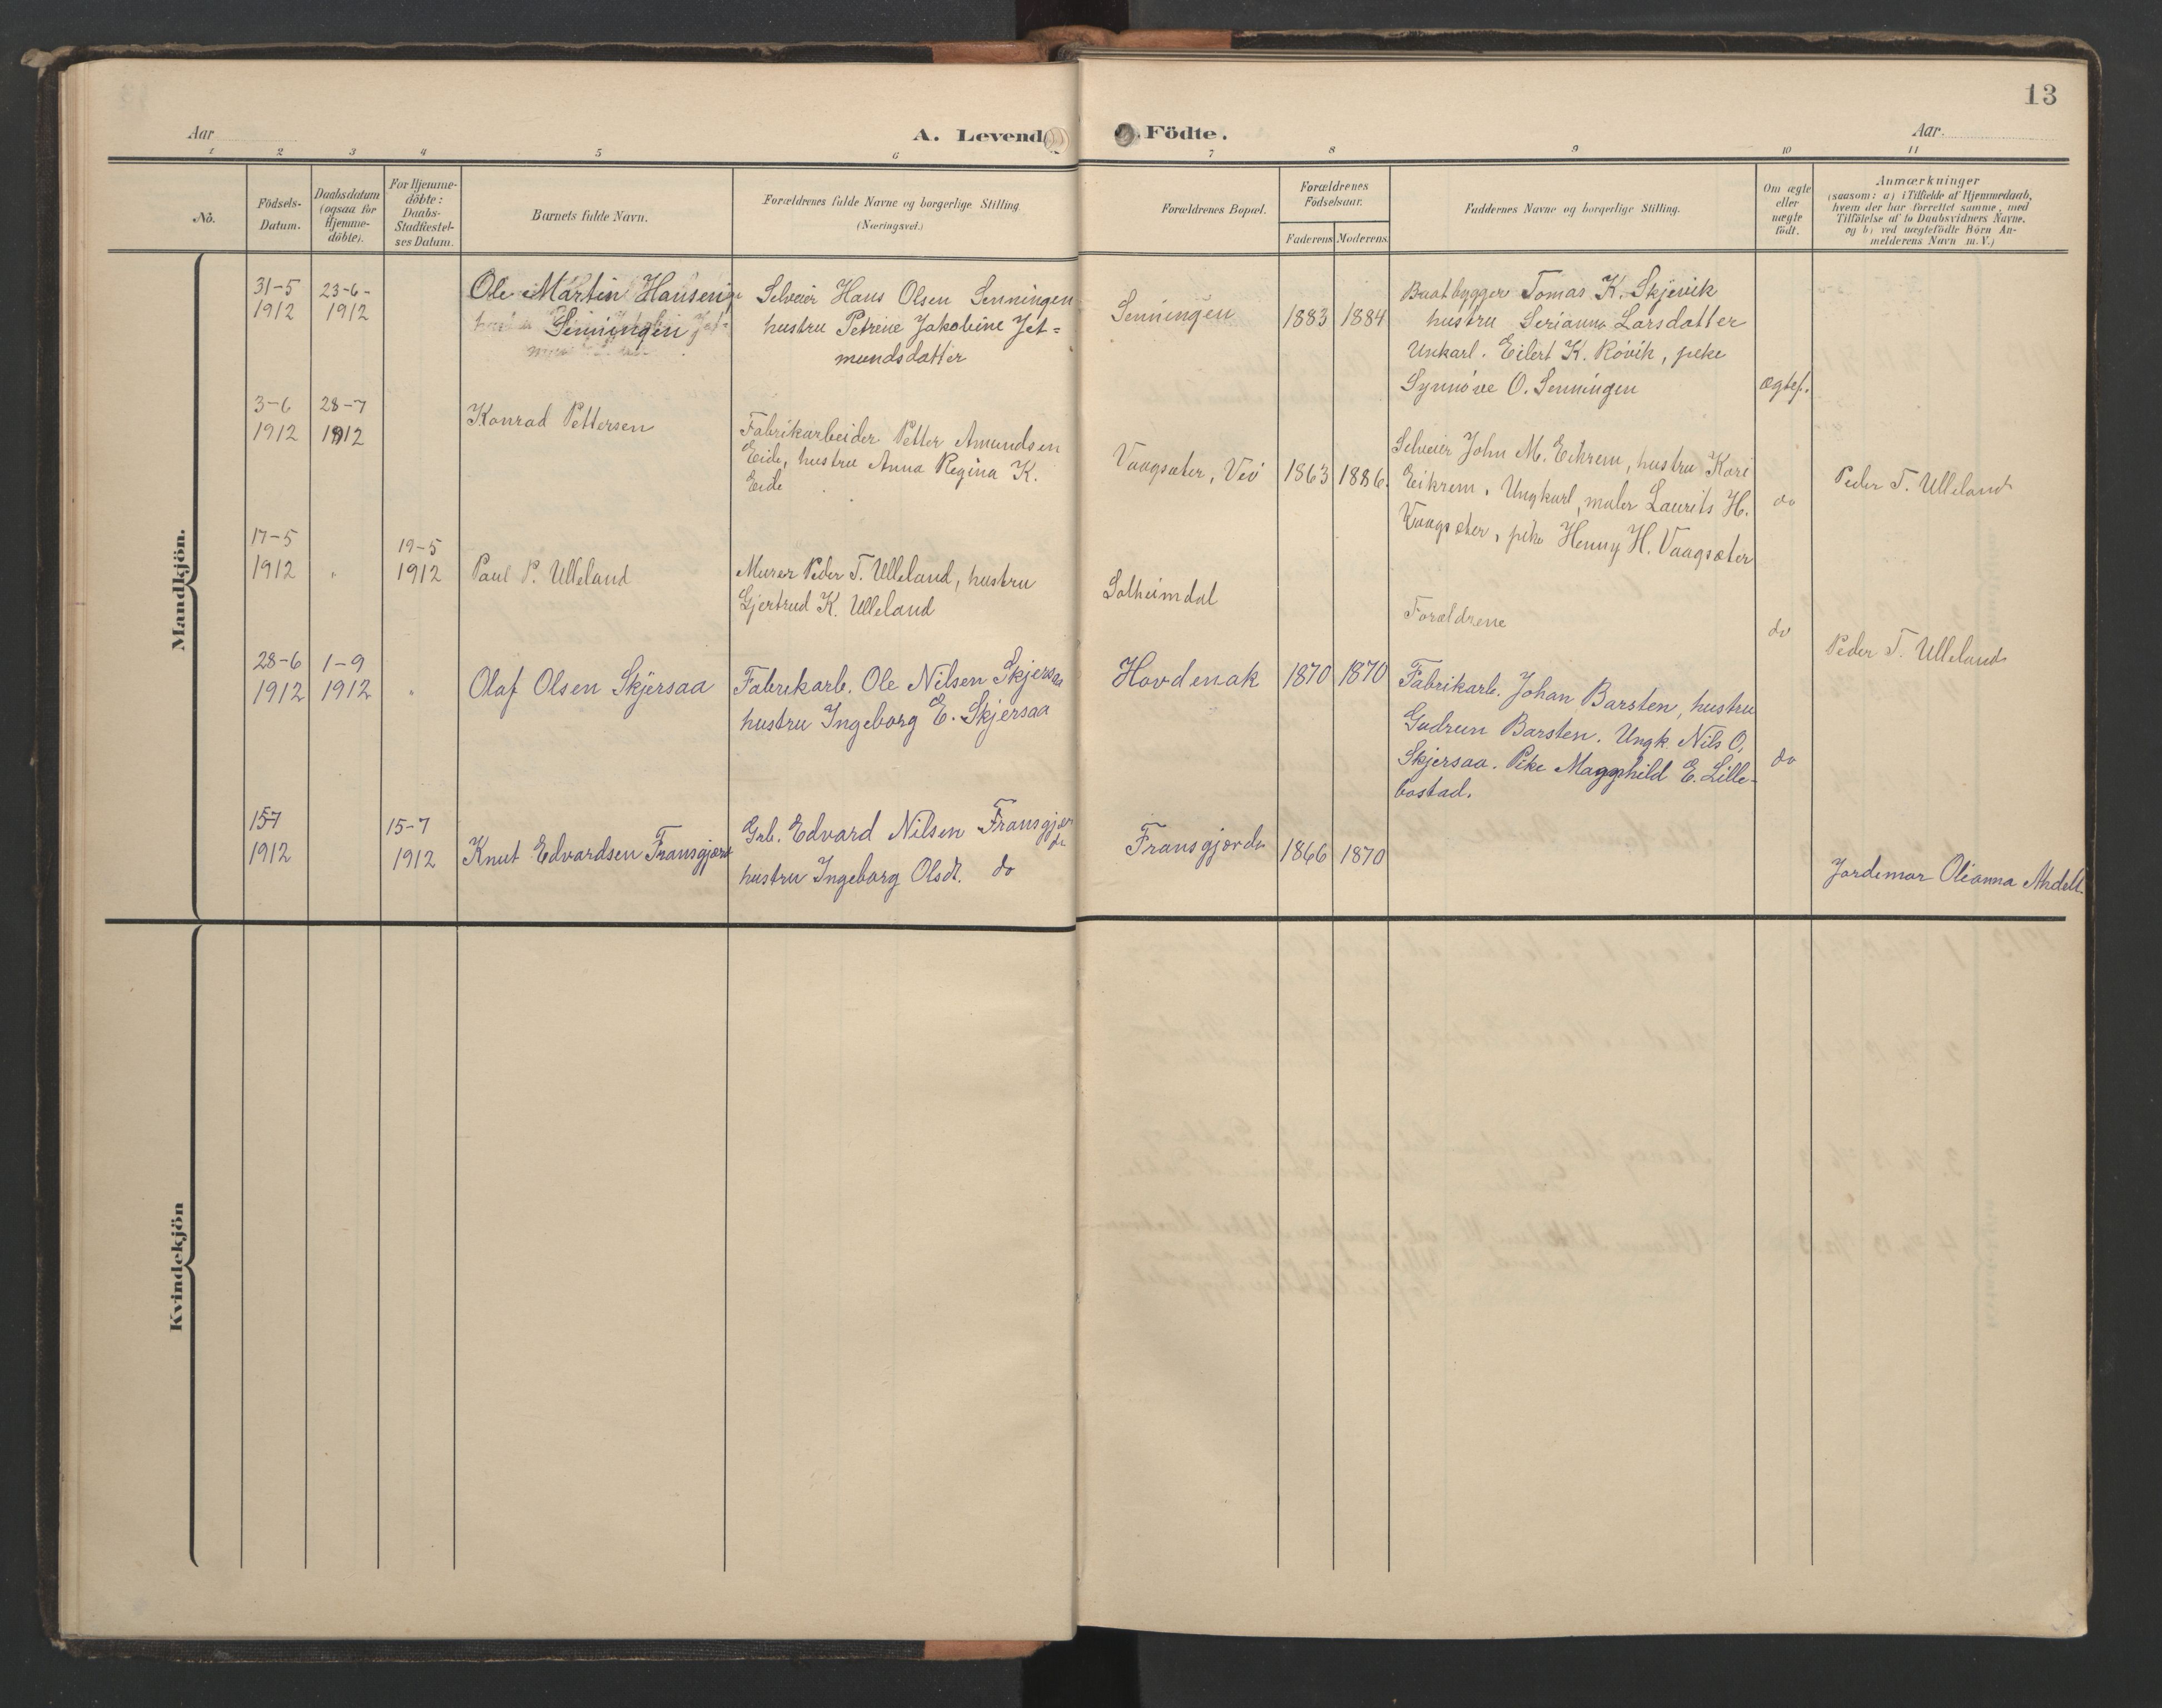 13
Aar
A. Levende Födte.
Aar.
1 2 3 4 5 6 7 8 9 10 11
No.
Födsels-
Datum.
Daabsdatum
(ogsaa for
Hjemme-
döbte).
For Hjemme-
döbte:
Daabs-
Stadfæstel-
ses Datum.
Barnets fulde Navn.
Forældrenes fulde Navne og borgerlige Stilling
(Næringsvei.)
Forældrenes Bopæl.
Forældrenes
Födselsaar.
Faderens Moderens
Faddernes Navne og borgerlige Stilling.
Om ægte
eller
uægte
födt.
Anmærkninger
(saasom: a) i Tilfælde af Hjemmedaab,
hvem der har forrettet samme, med
Tilföielse af to Daabsvidners Navne,
og b) ved uægtefödte Börn An-
melderens Navn m.V.)
Mandkjön.
31-5
1912
23-6-
1912
Ole Martin Hansen
Senningen
Selveier Hans Olsen Senningen
hustru Petrine Jakobine Jet=
mundsdatter
Senningen
1883 1884
Baatbygger Tomas K. Skjevik
hustru Serianna Larsdatter
Unkarl. Eilert K. Rövik, peke
Synnöve O. Senningen
ægtef.
3-6
1912
28-7
1912
Konrad Pettersen
Fabrikarbeider Petter Amundsen
Eide, hustru Anna Regina K.
Eide
Vaagsæter, Veö
1863 1886.
Selveier John M. Eikrem, hustru Kari
Eikrem. Ungkarl, maler Laurits H.
Vaagsæter, pike Henny H. Vaagsæter
do
Peder T. Ulleland
17-5
1912
"
19-5
1912
Paul P. Ulleland
Murer Peder T. Ulleland, hustru
Gjertrud K. Ulleland
Solheimdal
Forældrene
do
Peder T. Ulleland
28-6
1912
1-9
1912
"
Olaf Olsen Skjersaa
Fabrikarb. Ole Nilsen Skjersaa
hustru Ingeborg E. Skjersaa
Hovdenak
1870 1870
Fabrikarb. Johan Barsten, hustru
Gudrun Barsten. Ungk. Nils O.
Skjersaa. Pike Magnhild E. Lille-
bostad.
do
15-7
1912
15-7
1912
Knut Edvardsen Fransgjære
Grb. Edvard Nilsen Fransgjær
de
hustru Ingeborg Olsdt. do
Fransgjærde
1866 1870
Jordemor Olianna Mndell.
Kvindekjön